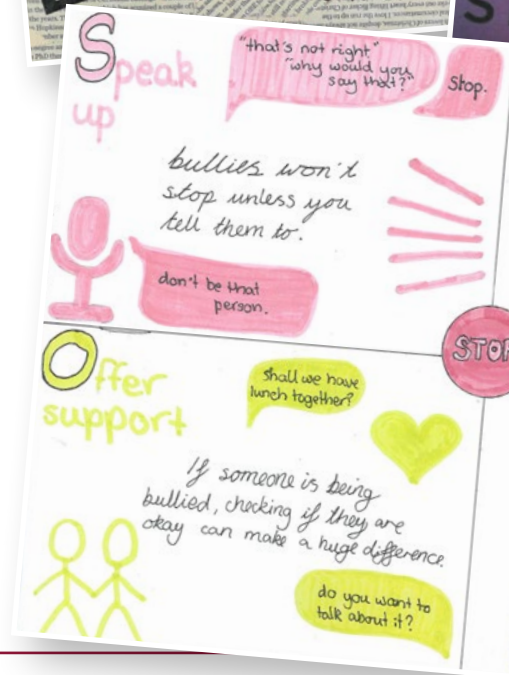 Speak
up
"that's not right"
"why would you
say that?"
Stop.
bullies won't
stop unless you
tell them to.
don't be that
person.
STOP
Offer
support
shall we have
lunch together?
If someone is being
bullied, checking if they are
okay can make a huge difference.
do you want to
talk about it?